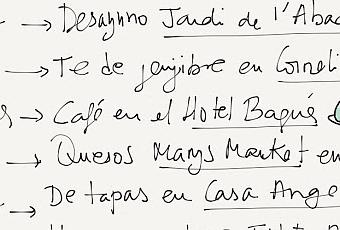 → Desayuno Jardi de l'Abad
→ Te de jenjibre en Corneli
→ Café en el Hotel Bagués
→ Quesos Marys Market en
→ De tapas en Casa Ange